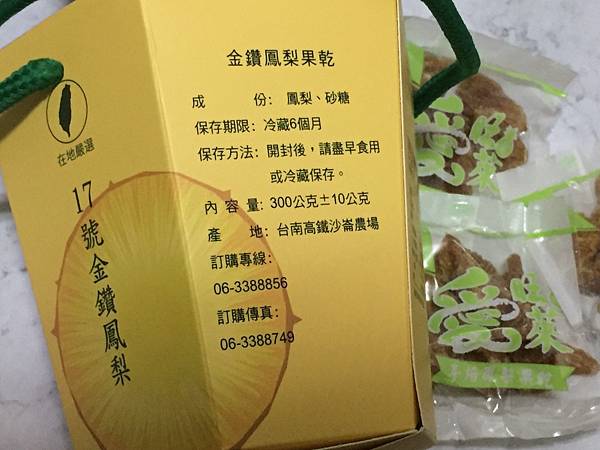 金鑽鳳梨果乾
成 份: 鳳梨、砂糖
保存期限: 冷藏6個月
保存方法: 開封後,請盡早食用
或冷藏保存。
內 容 量: 300公克±10公克
產 地: 台南高鐵沙崙農場
訂購專線:
06-3388856
訂購傳真:
06-3388749
在地嚴選
17號金鑽鳳梨
愛旺萊
愛旺萊
手焙鳳梨果乾